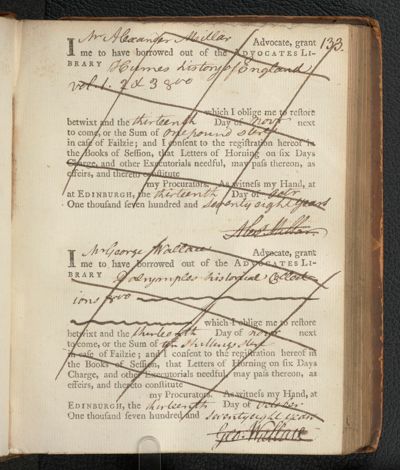 133.
I Mr Alexander Millar Advocate, grant
me to have borrowed out of the ADVOCATES LI-
BRARY Humes history of England
vol 1. 2 & 3 8vo
which I oblige me to restore
betwixt and the thirteenth Day of novr next
to come, or the Sum of One pound sterl
in case of Failzie; and I consent to the registration hereof in
the Books of Session, that Letters of Horning on six Days
Charge, and other Executorials needful, may pass thereon, as
effeirs, and thereto constitute
my Procurators. As witness my Hand, at
at EDINBURGH, the thirteenth Day of octr
One thousand seven hundred and seventy eight years
Alexr Millar
I Mr George Wallace Advocate, grant
me to have borrowed out of the ADVOCATES LI-
BRARY Dalrymples historical Collect
ions 8vo
which I oblige me to restore
betwixt and the thirteenth Day of novr next
to come, or the Sum of ten shillings sterl
in case of Failzie; and I consent to the registration hereof in
the Books of Session, that Letters of Horning on six Days
Charge, and other Executorials needful, may pass thereon, as
effeirs, and thereto constitute
my Procurators. As witness my Hand, at
EDINBURGH, the thirteenth Day of October
One thousand seven hundred and seventy eight years
Geo. Wallace